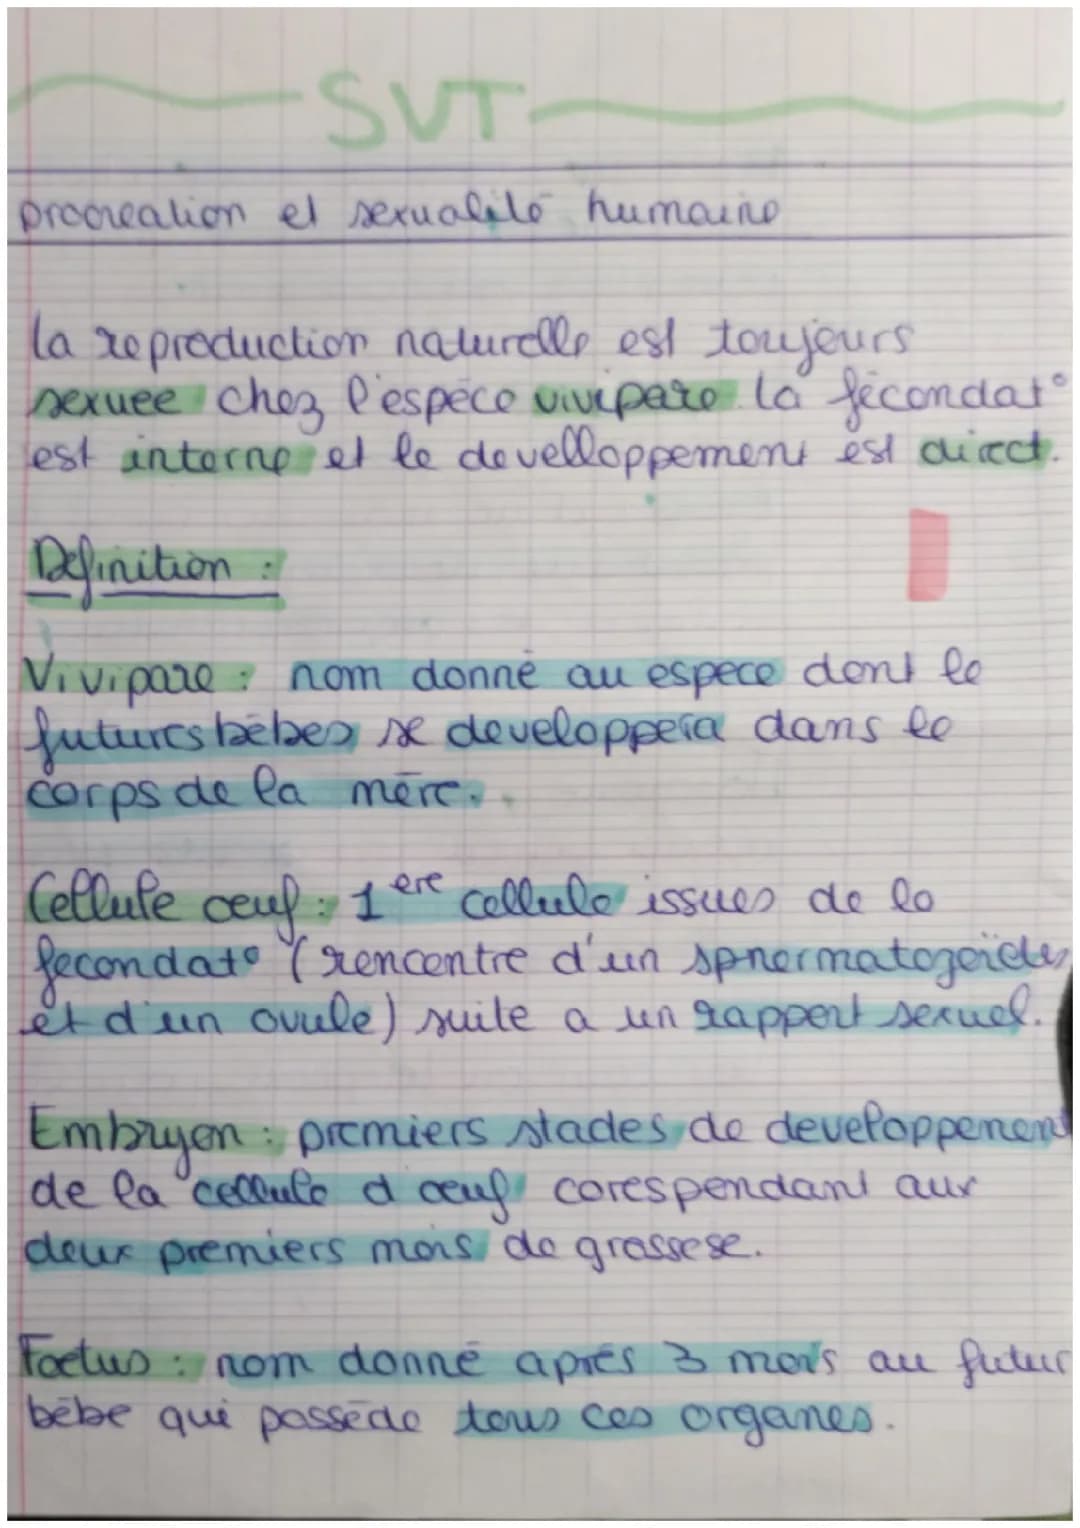 SVT
procreation et sexualité humaine
la reproduction naturelle est toujours
sexuee chez l'espéce vivipare la fécondat°
est interne et le develloppement est direct.
Définition :
Vivipare : nom donné au espece dont le
futures bébes se developpera dans le
corps de la mére.
Cellule oeuf : 1ere cellule issues de la
fecondat° (rencontre d'un spnermatozoïdes
et d'un ovule) suite a un rapport sexuel.
Embryon : premiers stades de developpement
de la cellule d oeuf corespondant aux
deux premiers mois de grossese.
Foetus : nom donné aprés 3 mois au futur
bébe qui posséde tous ces organes.